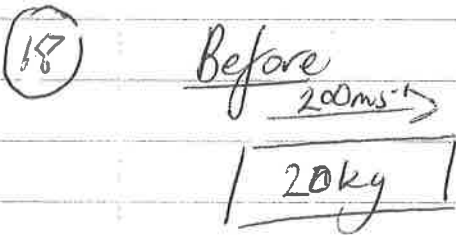 18 Before
200ms⁻¹
20kg